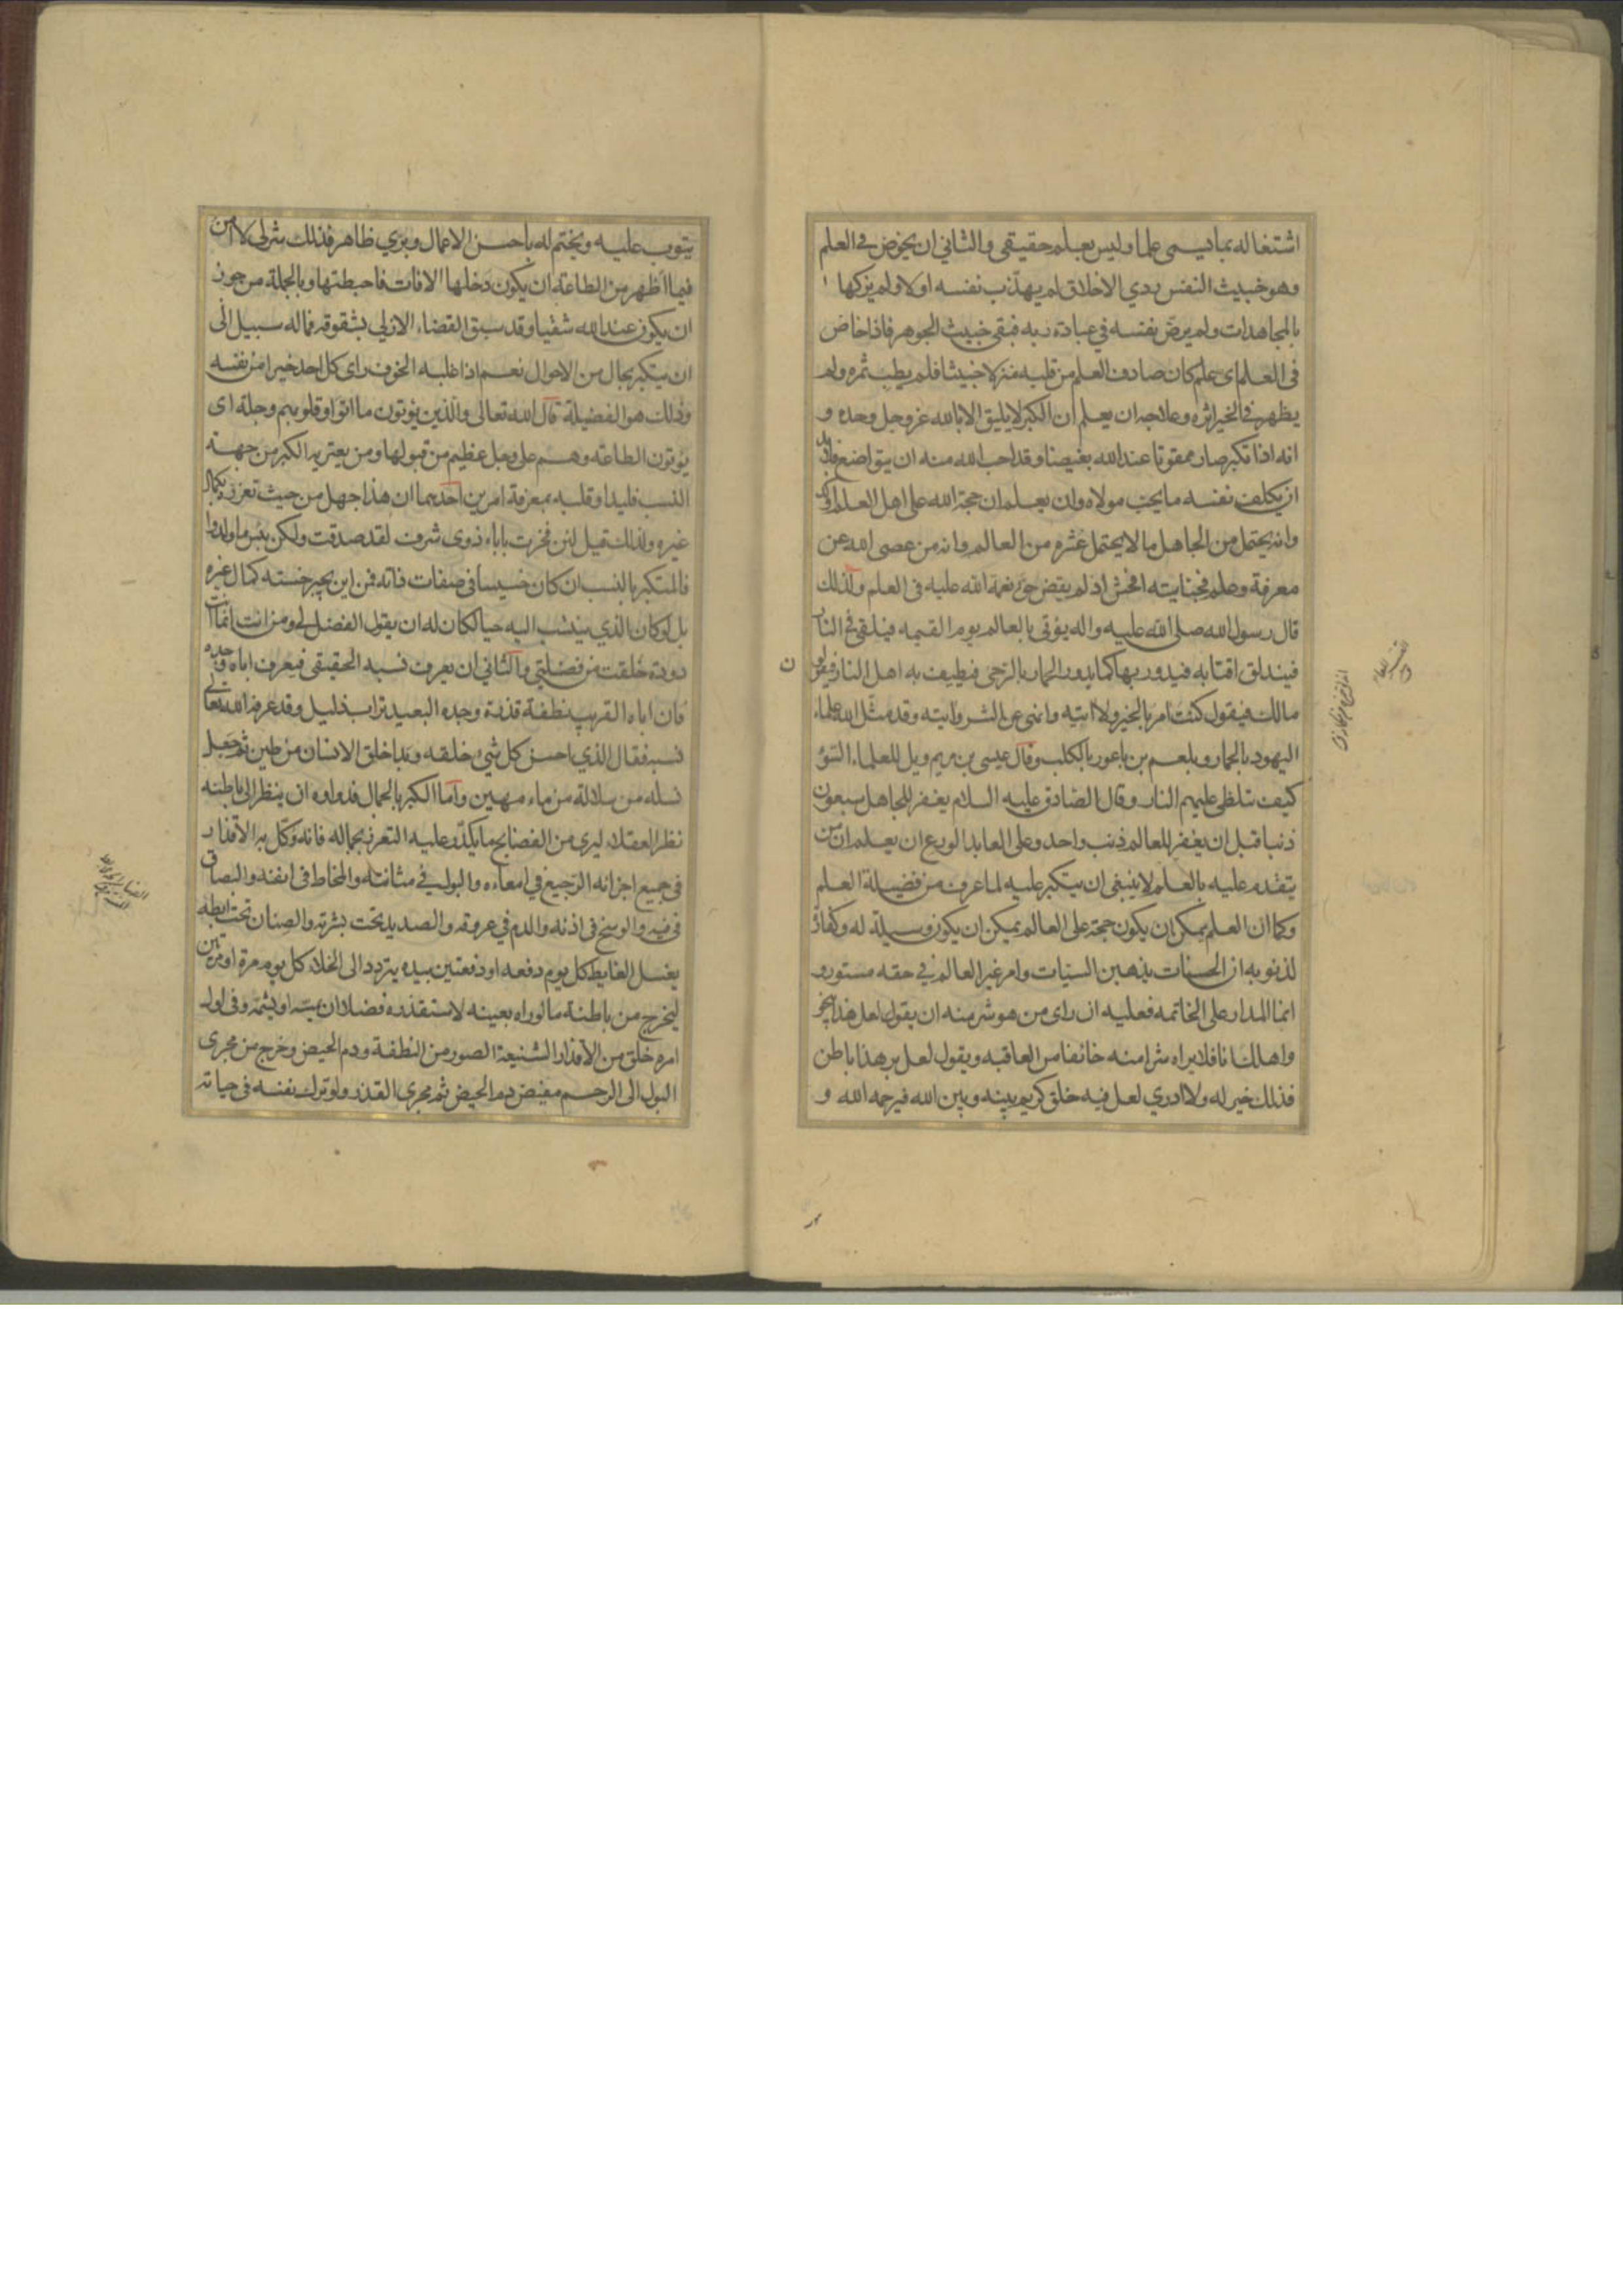 اشتغاله بما يسمى علما وليس بعلم حقيقي والثاني ان يخوض في العلم
وهو خبيث النفس ردي الاخلاق لم يهذب نفسه اولا ولم يزكها
بالمجاهدات ولم يرض نفسه في عبادة ربه فبقى خبيث الجوهر فاذا خاض
في العلم اى علم كان صادف العلم من قلبه منزلا خبيثا فلم يطب ثمره ولم
يظهر في الخير اثره وعلاجه ان يعلم ان الكبر لا يليق الا بالله عز وجل وحده و
انه اذا تكبر صار ممقوتا عند الله بغيضا وقد احب الله منه ان يتواضع فلابد
ان يكلف نفسه ما يحب مولاه وان يعلم ان حجة الله على اهل العلم اوكد
وانه يحتمل من الجاهل ما لا يحتمل عشره من العالم وانه من عصى الله عن
معرفة وعلم فجنايته افحش اذ لم يقض حق نعمة الله عليه في العلم ولذلك
قال رسول الله صلى الله عليه واله يؤتى بالعالم يوم القيمه فيلقى في النار
فيندلق اقتابه فيدور بها كما يدور الحمار بالرحى فيطيف به اهل النار فيقولون
مالك فيقول كنت امر بالخير ولا اتيه وانهى عن الشر واتيه وقد مثل الله علماء
اليهود بالحمار وبلعم بن باعور بالكلب وقال عيسى بن مريم ويل للعلماء السوء
كيف تتلظى عليهم النار وقال الصادق عليه السلام يغفر للجاهل سبعون
ذنبا قبل ان يغفر للعالم ذنب واحد وعلى العابد الورع ان يعلم ان من
يتقدم عليه بالعلم لا ينبغي ان يتكبر عليه لما عرف من فضيلة العلم
وكما ان العلم يمكن ان يكون حجة على العالم يمكن ان يكون وسيلة له وكفارة
لذنوبه ان الحسنات يذهبن السيئات وامر غير العالم في حقه مستور و
انما المدار على الخاتمه فعليه ان راى من هو شر منه ان يقول لعل هذا ينجو
واهلك انا فلا يراه شرا منه خائفا من العاقبه ويقول لعل بر هذا باطن
فذلك خير له ولا ادري لعل فيه خلق كريم بينه وبين الله فيرحمه الله و
يتوب عليه ويختم له باحسن الاعمال وبرى ظاهر فذلك شر لى لا امن
فيما اظهر من الطاعة ان يكون دخلها الافات فاحبطتها وبالجملة من جوز
ان يكون عند الله شقيا وقد سبق القضاء الازلى بشقوته فما له سبيل الى
ان يتكبر بحال من الاحوال نعم اذا غلبه الخوف راى كل احد خيرا من نفسه
وذلك هو الفضيلة قال الله تعالى والذين يؤتون ما اتوا وقلوبهم وجلة اى
يؤتون الطاعة وهم على وجل عظيم من قبولها ومن يعتريه الكبر من جهة
النسب فليداو قلبه بمعرفة امرين احدهما ان هذا جهل من حيث تعزز بكمال
غيره ولذلك قيل لئن فخرت باباء ذوى شرف لقد صدقت ولكن بئس ما ولدوا
فالمتكبر بالنسب ان كان خسيسا في صفات ذاته فمن اين يجبر خسته كمال غيره
بل لو كان الذي ينتسب اليه حيا لكان له ان يقول الفضل لي ومن انت انما انت
دودة خلقت من فضلتي والثاني ان يعرف نسبه الحقيقى فيعرف اباه وجده
فان اباه القريب نطفة قذرة وجده البعيد تراب ذليل وقد عرفه الله تعالى
نسبه فقال الذي احسن كل شئ خلقه وبدا خلق الانسان من طين ثم جعل
نسله من سلالة من ماء مهين واما الكبر بالجمال فدواؤه ان ينظر الى باطنه
نظر العقلاء ليرى من الفضايح ما يكدر عليه التعزز بجماله فانه وكل به الاقذار
في جميع اجزائه الرجيع في امعاءه والبول في مثانته والمخاط في انفه والبصاق
في فيه والوسخ في اذنه والدم في عروقه والصديد تحت بشرته والصنان تحت ابطه
يغسل الغايط كل يوم دفعه او دفعتين بيده يتردد الى الخلاء كل يوم مرة او مرتين
ليخرج من باطنه ما لو راه بعينه لاستقذره فضلا ان يمسه او يشمه وفى اول
امره خلق من الاقذار الشنيعة الصور من النطفة ودم الحيض وخرج من مجرى
البول الى الرحم مفيض دم الحيض ثم مجرى القذر ولو ترك نفسه في حياته